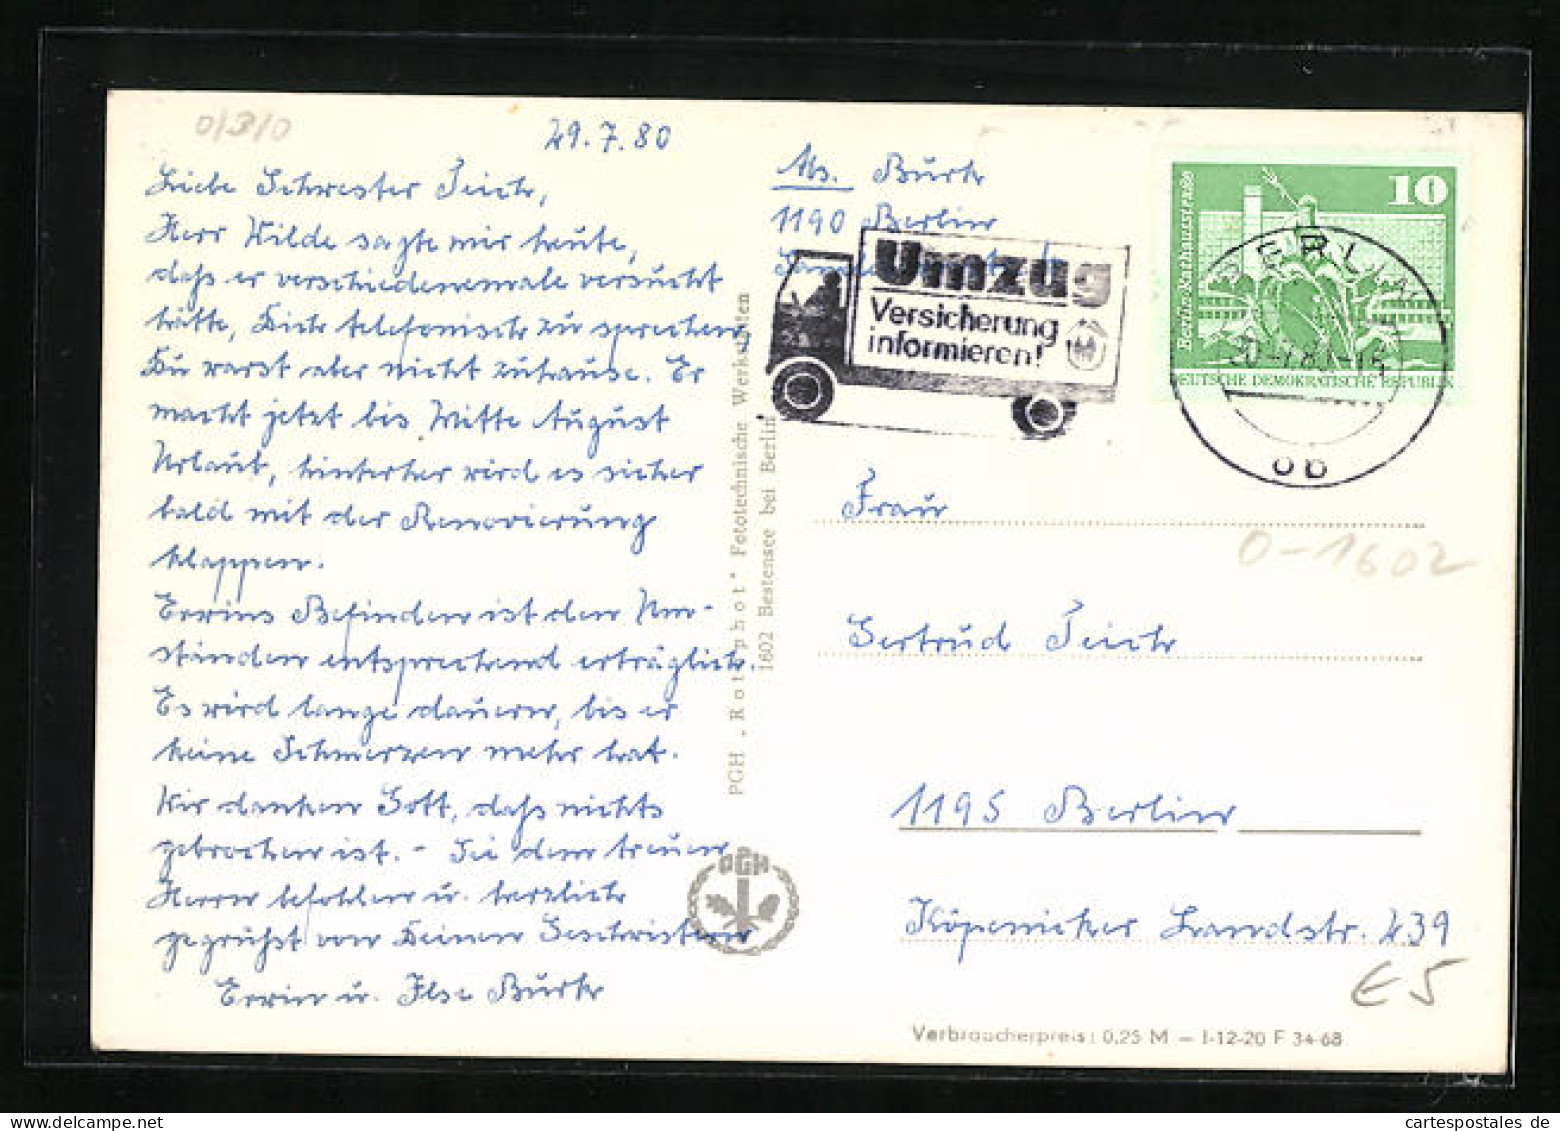 0/3/0
29.7.80
Liebe Schwester Teich,
Herr Wilde sagte mir heute,
daß er verschiedenemale versucht
hätte, Dich telefonisch zu sprechen,
Du warst aber nicht zuhause. Er
macht jetzt bis Mitte August
Urlaub, hinterher wird es sicher
bald mit der Renovierung
klappen.
Erwins Befinden ist den Um-
ständen entsprechend erträglich.
Es wird lange dauern, bis er
keine Schmerzen mehr hat.
Wir danken Gott, daß nichts
gebrochen ist. - Sei dem treuen
Herrn befohlen u. herzlich
gegrüßt von Deinen Geschwistern
Erwin u. Ilse Burk
PGH „Rotophot" Fototechnische Werkstätten
1602 Bestensee bei Berlin
PGH
Abs. Burk
1190 Berlin
Umzug
Versicherung
informieren!
10
Berlin-Rathausstraße
DEUTSCHE DEMOKRATISCHE REPUBLIK
BERLIN
Frau
0-1602
Gertrud Teich
1195 Berlin
Köpenicker Landstr. 239
E5
Verbraucherpreis: 0,25 M — I-12-20 F 34-68
cartespostales de